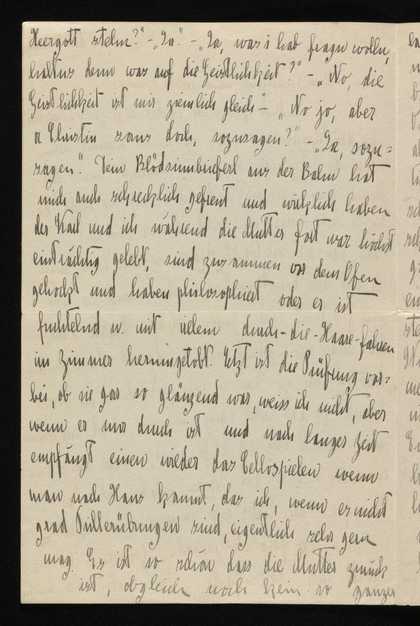 Herrgott stehn?" - "Ja" - "Ja, was i hab fragn wolln,
haltns denn was auf die Geistlichkeit?" - "No die
Geistlichkeit ist mir ziemlich gleich" - "No jo, aber
a Christin sans doch, sozusagen?" - "Ja, sozu=
sagen". Dein Blödsinnbrieferl aus der Bahn hat
mich auch schrecklich gefreut und wirklich haben
der Karl und ich während die Mutter fort war höchst
einträchtig gelebt, sind zusammen vor dem Ofen
gehockt und haben philosophiert oder er ist
fuchtelnd u. mit vielem durch-die-Haare-fahren
im Zimmer herumgetobt. Jetzt ist die Prüfung vor=
bei, ob sie gar so glänzend war, weiss ich nicht, aber
wenn er nur durch ist und nach langer Zeit
empfängt einen wieder das Cellospielen wenn
man nach Haus kommt, das ich, wenn es nicht
grad Trillerübungen sind, eigentlich sehr gern
mag. Es ist so schön dass die Mutter zurück
ist, obgleich noch kein so ganzer